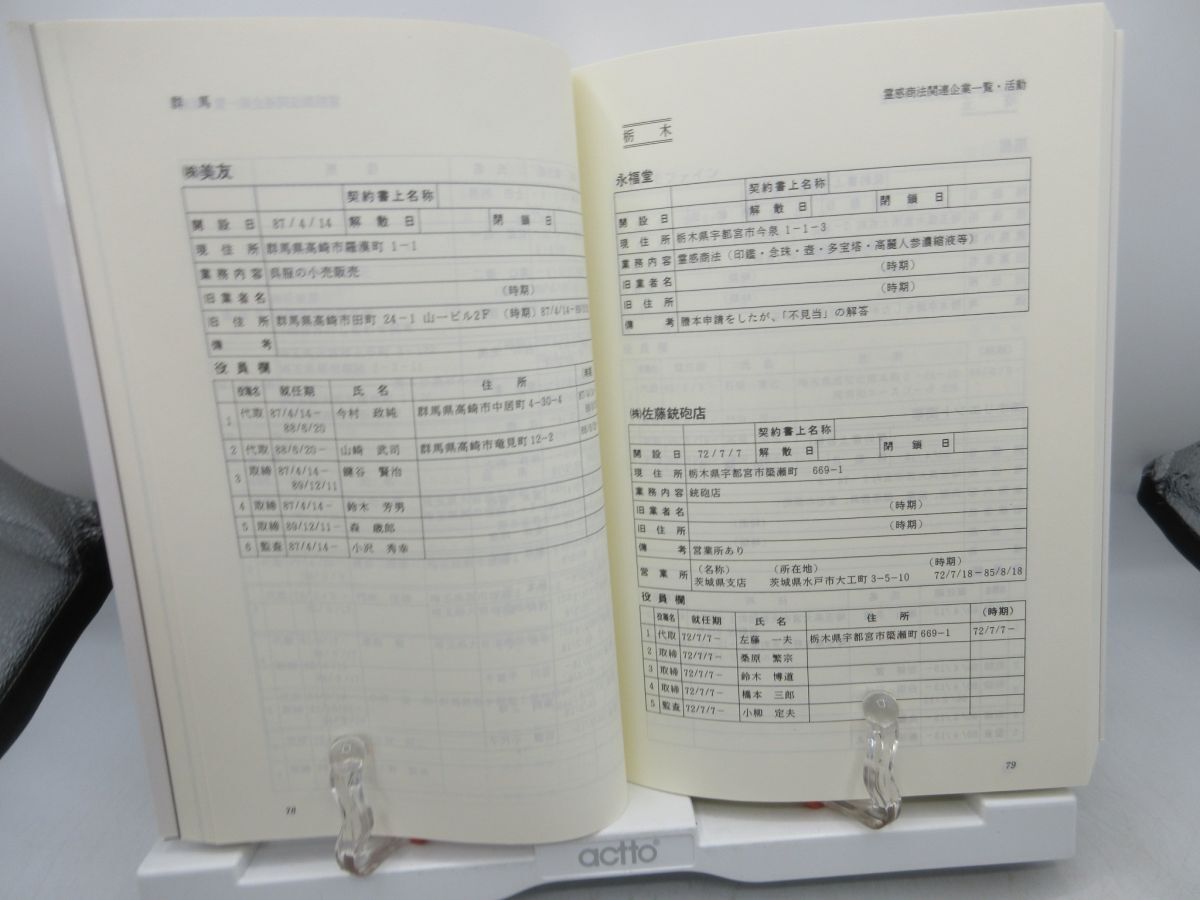 群 馬
㈱美友
契約書上名称
開 設 日 87/4/14 解 散 日 閉 鎖 日
現 住 所 群馬県高崎市羅漢町 1-1
業務内容 呉服の小売販売
旧業者名 (時期)
旧 住 所 群馬県高崎市田町 24-1 山一ビル2F (時期) 87/4/14-
備 考
役員欄
役職名 就任期 氏 名 住 所
1 代取 87/4/14-88/6/20 今村 政純 群馬県高崎市中居町4-30-4
2 代取 88/6/20- 山崎 武司 群馬県高崎市竜見町12-2
3 取締 87/4/14-89/12/11 鍵谷 賢治
4 取締 87/4/14- 鈴木 芳男
5 取締 89/12/11- 森 歳郎
6 監査 87/4/14- 小沢 秀幸
78
霊感商法関連企業一覧・活動
栃 木
永福堂
契約書上名称
開 設 日 解 散 日 閉 鎖 日
現 住 所 栃木県宇都宮市今泉 1-1-3
業務内容 霊感商法(印鑑・念珠・壺・多宝塔・高麗人参濃縮液等)
旧業者名 (時期)
旧 住 所 (時期)
備 考 謄本申請をしたが、「不見当」の解答
㈱佐藤銃砲店
契約書上名称
開 設 日 72/7/7 解 散 日 閉 鎖 日
現 住 所 栃木県宇都宮市簗瀬町 669-1
業務内容 銃砲店
旧業者名 (時期)
旧 住 所 (時期)
備 考 営業所あり
営 業 所 (名称) (所在地) (時期)
茨城県支店 茨城県水戸市大工町3-5-10 72/7/18-85/8/18
役員欄
役職名 就任期 氏 名 住 所 (時期)
1 代取 72/7/7- 左藤 一夫 栃木県宇都宮市簗瀬町669-1 72/7/7-
2 取締 72/7/7- 桑原 繁宗
3 取締 72/7/7- 鈴木 博道
4 取締 72/7/7- 橋本 三郎
5 監査 72/7/7- 小柳 定夫
79
actto